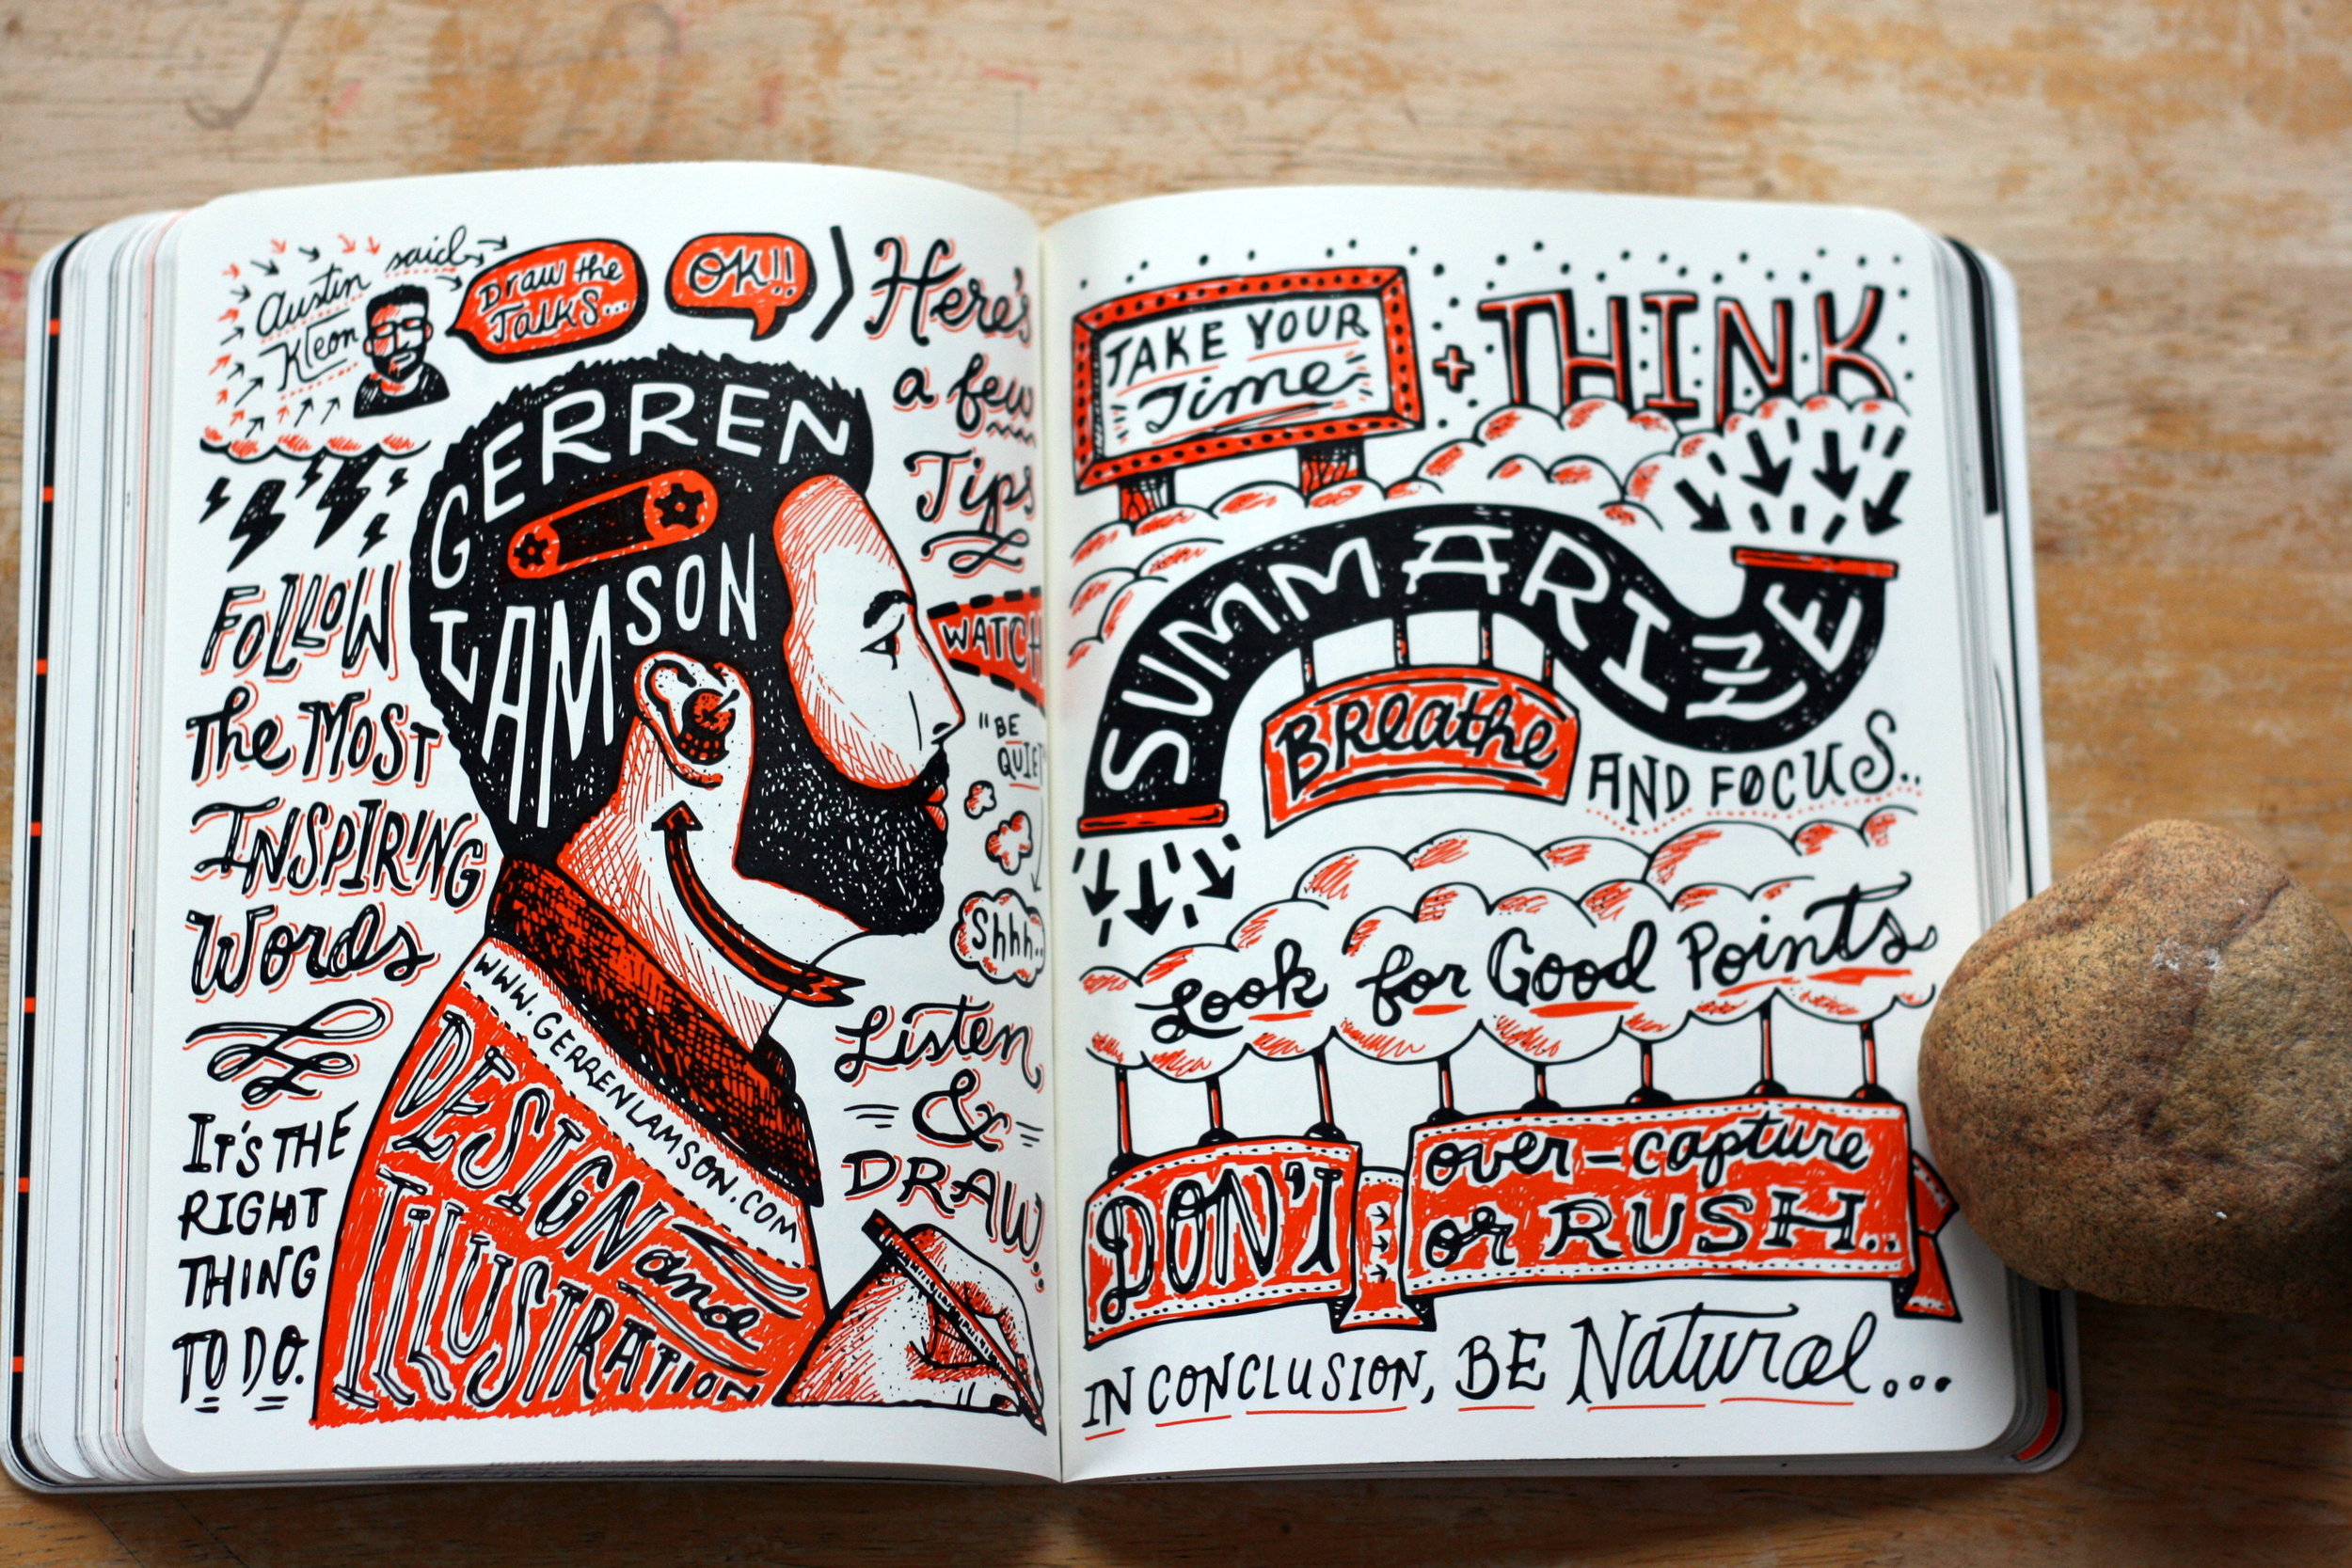 Austin
Kleon
said
Draw the
Talks...
OK!!
Here's
a few
Tips
GERREN
LAMSON
WATCH
"BE
QUIET
Shhh..
FOLLOW
The MOST
INSPIRING
Words
IT'S THE
RIGHT
THING
TO DO.
WWW.GERRENLAMSON.COM
DESIGN and
ILLUSTRATION
Listen
&
DRAW!
TAKE YOUR
Time
+ THINK
SUMMARIZE
BReathe
AND FOCUS..
Look for Good Points
DON'T
over-capture
or RUSH..
IN CONCLUSION, BE Natural...